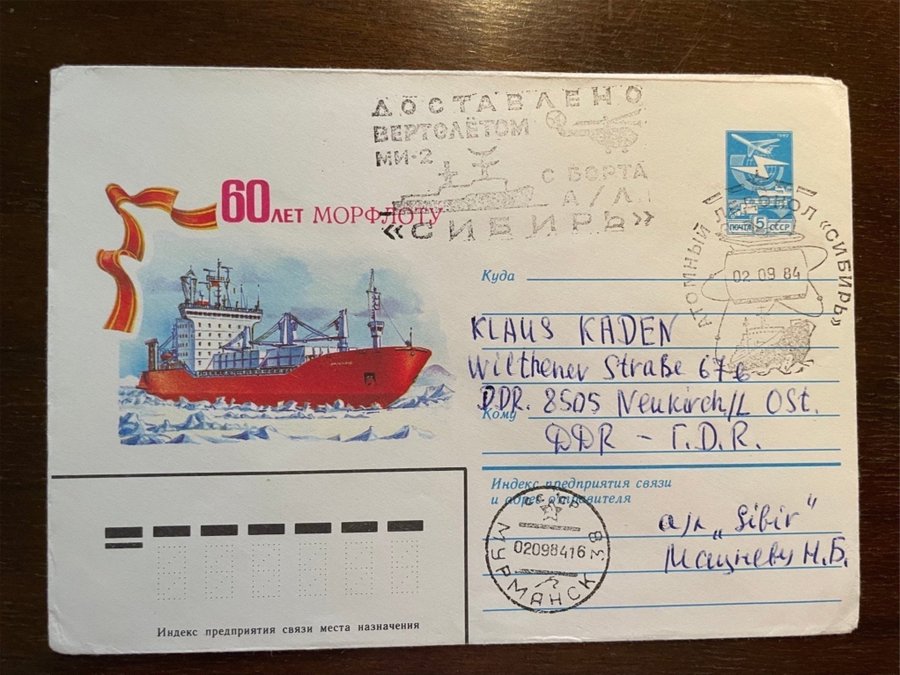 ДОСТАВЛЕНО
ВЕРТОЛЁТОМ
МИ-2
С БОРТА
А/Л
«СИБИРЬ»
60 ЛЕТ МОРФЛОТУ
1982
ПОЧТА 5 СССР
АТОМНЫЙ ЛЕДОКОЛ «СИБИРЬ»
02 09 84
Куда
KLAUS KADEN
Wilthener Straße 67e
DDR. 8505 Neukirch/L OSt.
Кому
DDR - G.D.R.
Индекс предприятия связи
и адрес отправителя
а/л „Sibir"
Мацневу Н.Б.
СССР
02098416
МУРМАНСК 38
Индекс предприятия связи места назначения